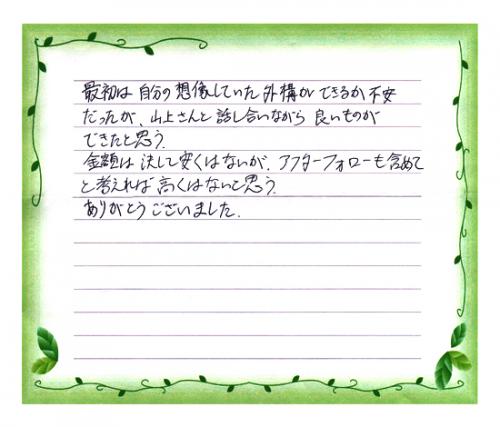 最初は自分の想像していた外構ができるか不安
だったが、山上さんと話し合いながら良いものが
できたと思う。
金額は決して安くはないが、アフターフォローも含めて
と考えれば高くはないと思う。
ありがとうございました。